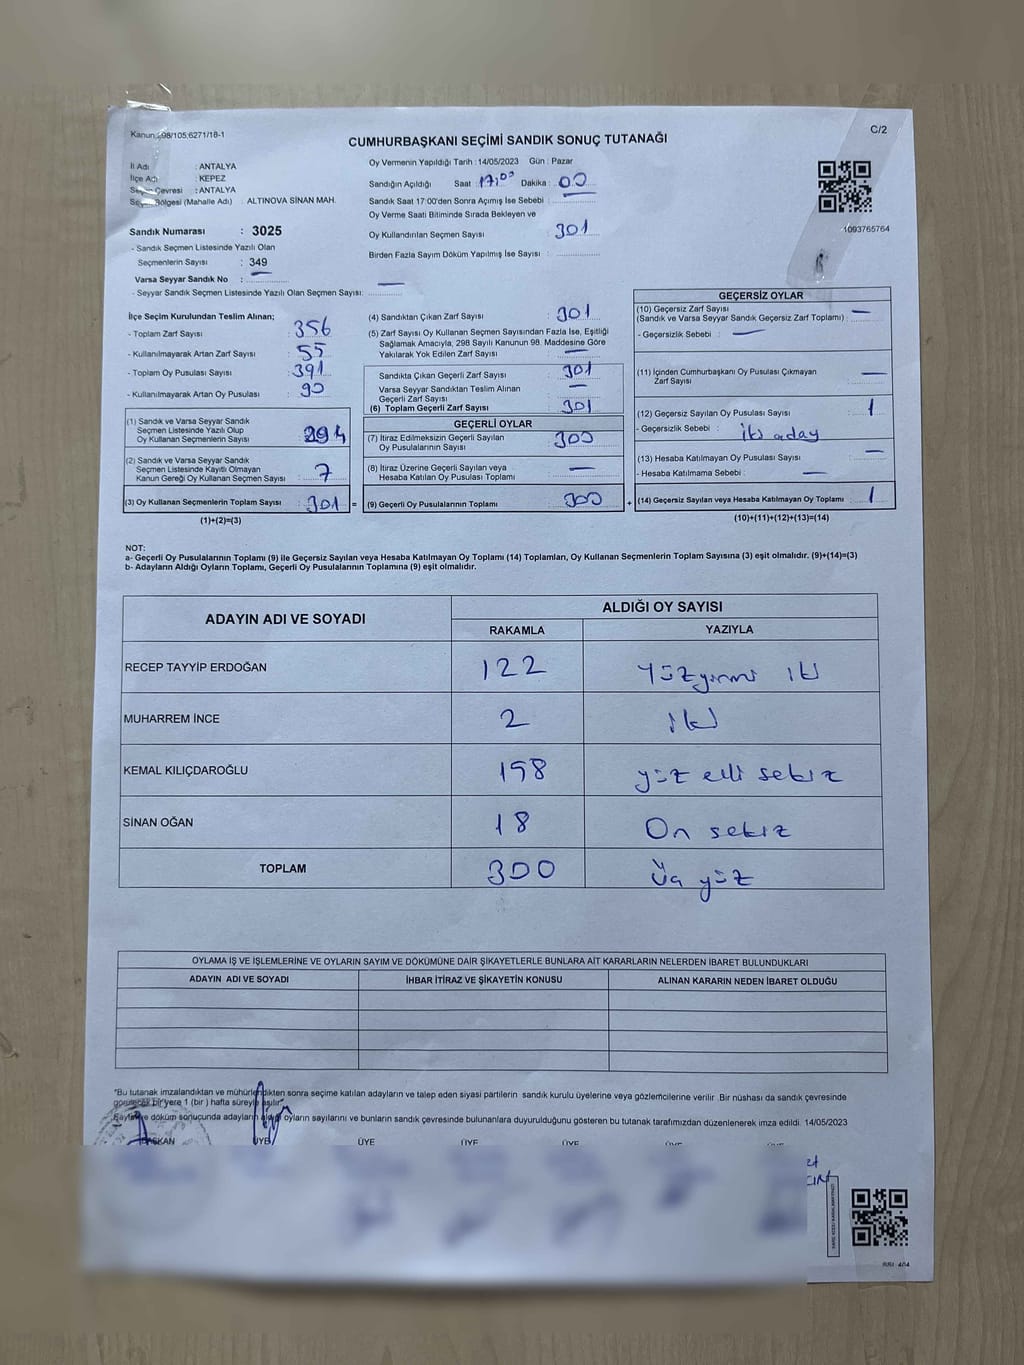 Kanun : 98/105;6271/18-1
C/2
CUMHURBAŞKANI SEÇİMİ SANDIK SONUÇ TUTANAĞI
İl Adı : ANTALYA
İlçe Adı : KEPEZ
Seçim Çevresi : ANTALYA
Seçim Bölgesi (Mahalle Adı) : ALTINOVA SİNAN MAH.
Sandık Numarası : 3025
- Sandık Seçmen Listesinde Yazılı Olan
Seçmenlerin Sayısı : 349
Varsa Seyyar Sandık No : —
- Seyyar Sandık Seçmen Listesinde Yazılı Olan Seçmen Sayısı: —
Oy Vermenin Yapıldığı Tarih : 14/05/2023 Gün : Pazar
Sandığın Açıldığı Saat : 17:00 Dakika : 00
Sandık Saat 17:00'den Sonra Açımış İse Sebebi :
Oy Verme Saati Bitiminde Sırada Bekleyen ve
Oy Kullandırılan Seçmen Sayısı : 301
Birden Fazla Sayım Döküm Yapılmış İse Sayısı :
1093765764
İlçe Seçim Kurulundan Teslim Alınan;
- Toplam Zarf Sayısı : 356
- Kullanılmayarak Artan Zarf Sayısı : 55
- Toplam Oy Pusulası Sayısı : 391
- Kullanılmayarak Artan Oy Pusulası : 90
(1) Sandık ve Varsa Seyyar Sandık
Seçmen Listesinde Yazılı Olup
Oy Kullanan Seçmenlerin Sayısı : 294
(2) Sandık ve Varsa Seyyar Sandık
Seçmen Listesinde Kayıtlı Olmayan
Kanun Gereği Oy Kullanan Seçmen Sayısı : 7
(3) Oy Kullanan Seçmenlerin Toplam Sayısı : 301 =
(1)+(2)=(3)
(4) Sandıktan Çıkan Zarf Sayısı : 301
(5) Zarf Sayısı Oy Kullanan Seçmen Sayısından Fazla İse, Eşitliği
Sağlamak Amacıyla, 298 Sayılı Kanunun 98. Maddesine Göre
Yakılarak Yok Edilen Zarf Sayısı : —
Sandıkta Çıkan Geçerli Zarf Sayısı : 301
Varsa Seyyar Sandıktan Teslim Alınan
Geçerli Zarf Sayısı : —
(6) Toplam Geçerli Zarf Sayısı : 301
GEÇERLİ OYLAR
(7) İtiraz Edilmeksizin Geçerli Sayılan
Oy Pusulalarının Sayısı : 300
(8) İtiraz Üzerine Geçerli Sayılan veya
Hesaba Katılan Oy Pusulası Toplamı : —
(9) Geçerli Oy Pusulalarının Toplamı : 300 +
GEÇERSİZ OYLAR
(10) Geçersiz Zarf Sayısı
(Sandık ve Varsa Seyyar Sandık Geçersiz Zarf Toplamı) : —
- Geçersizlik Sebebi : —
(11) İçinden Cumhurbaşkanı Oy Pusulası Çıkmayan
Zarf Sayısı : —
(12) Geçersiz Sayılan Oy Pusulası Sayısı : 1
- Geçersizlik Sebebi : iki aday
(13) Hesaba Katılmayan Oy Pusulası Sayısı : —
- Hesaba Katılmama Sebebi : —
(14) Geçersiz Sayılan veya Hesaba Katılmayan Oy Toplamı : 1
(10)+(11)+(12)+(13)=(14)
NOT:
a- Geçerli Oy Pusulalarının Toplamı (9) ile Geçersiz Sayılan veya Hesaba Katılmayan Oy Toplamı (14) Toplamları, Oy Kullanan Seçmenlerin Toplam Sayısına (3) eşit olmalıdır. (9)+(14)=(3)
b- Adayların Aldığı Oyların Toplamı, Geçerli Oy Pusulalarının Toplamına (9) eşit olmalıdır.
ADAYIN ADI VE SOYADI
ALDIĞI OY SAYISI
RAKAMLA YAZIYLA
RECEP TAYYİP ERDOĞAN 122 Yüzyirmi iki
MUHARREM İNCE 2 iki
KEMAL KILIÇDAROĞLU 158 yüz elli sekiz
SİNAN OĞAN 18 On sekiz
TOPLAM 300 Üç yüz
OYLAMA İŞ VE İŞLEMLERİNE VE OYLARIN SAYIM VE DÖKÜMÜNE DAİR ŞİKAYETLERLE BUNLARA AİT KARARLARIN NELERDEN İBARET BULUNDUKLARI
ADAYIN ADI VE SOYADI İHBAR İTİRAZ VE ŞİKAYETİN KONUSU ALINAN KARARIN NEDEN İBARET OLDUĞU
*Bu tutanak imzalandıktan ve mühürlendikten sonra seçime katılan adayların ve talep eden siyasi partilerin sandık kurulu üyelerine veya gözlemcilerine verilir .Bir nüshası da sandık çevresinde
görülecek bir yere 1 (bir ) hafta süreyle asılır.
Sayım ve döküm sonucunda adayların aldığı oyların sayılarını ve bunların sandık çevresinde bulunanlara duyurulduğunu gösteren bu tutanak tarafımızdan düzenlenerek imza edildi. 14/05/2023
BAŞKAN ÜYE ÜYE ÜYE ÜYE